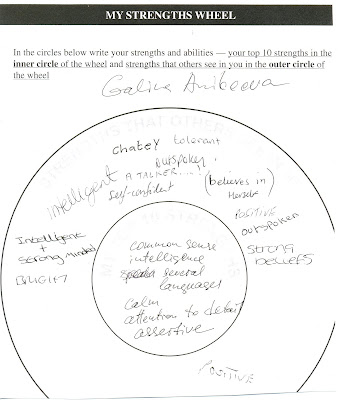 MY STRENGTHS WHEEL
In the circles below write your strengths and abilities — your top 10 strengths in the
inner circle of the wheel and strengths that others see in you in the outer circle of
the wheel
Galina
STRENGTHS THAT OTHERS
chatey tolerant
outspoken,
A TALKER....!
intelligent
self-confident
(believes in)
Herself
POSITIVE
outspoken
Strong
beliefs
Intelligene
+
Strong Minded
BRIGHT
MY STRENGTHS
common sense
intelligence
speaks several
languages
calm
attention to detail
assertive
POSITIVE